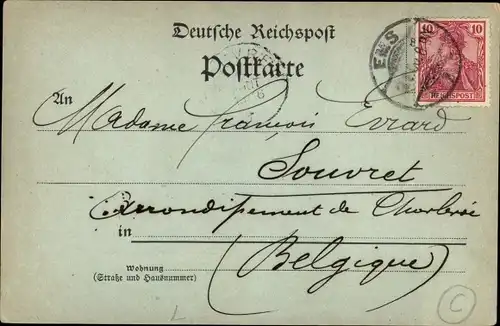 Deutsche Reichspost
Postkarte
EMS
10 10
REICHSPOST
An
Madame François Evrard
Souvret
Arrondissement de Charleroi
in
(Belgique)
Wohnung
(Straße und Hausnummer)
L
C